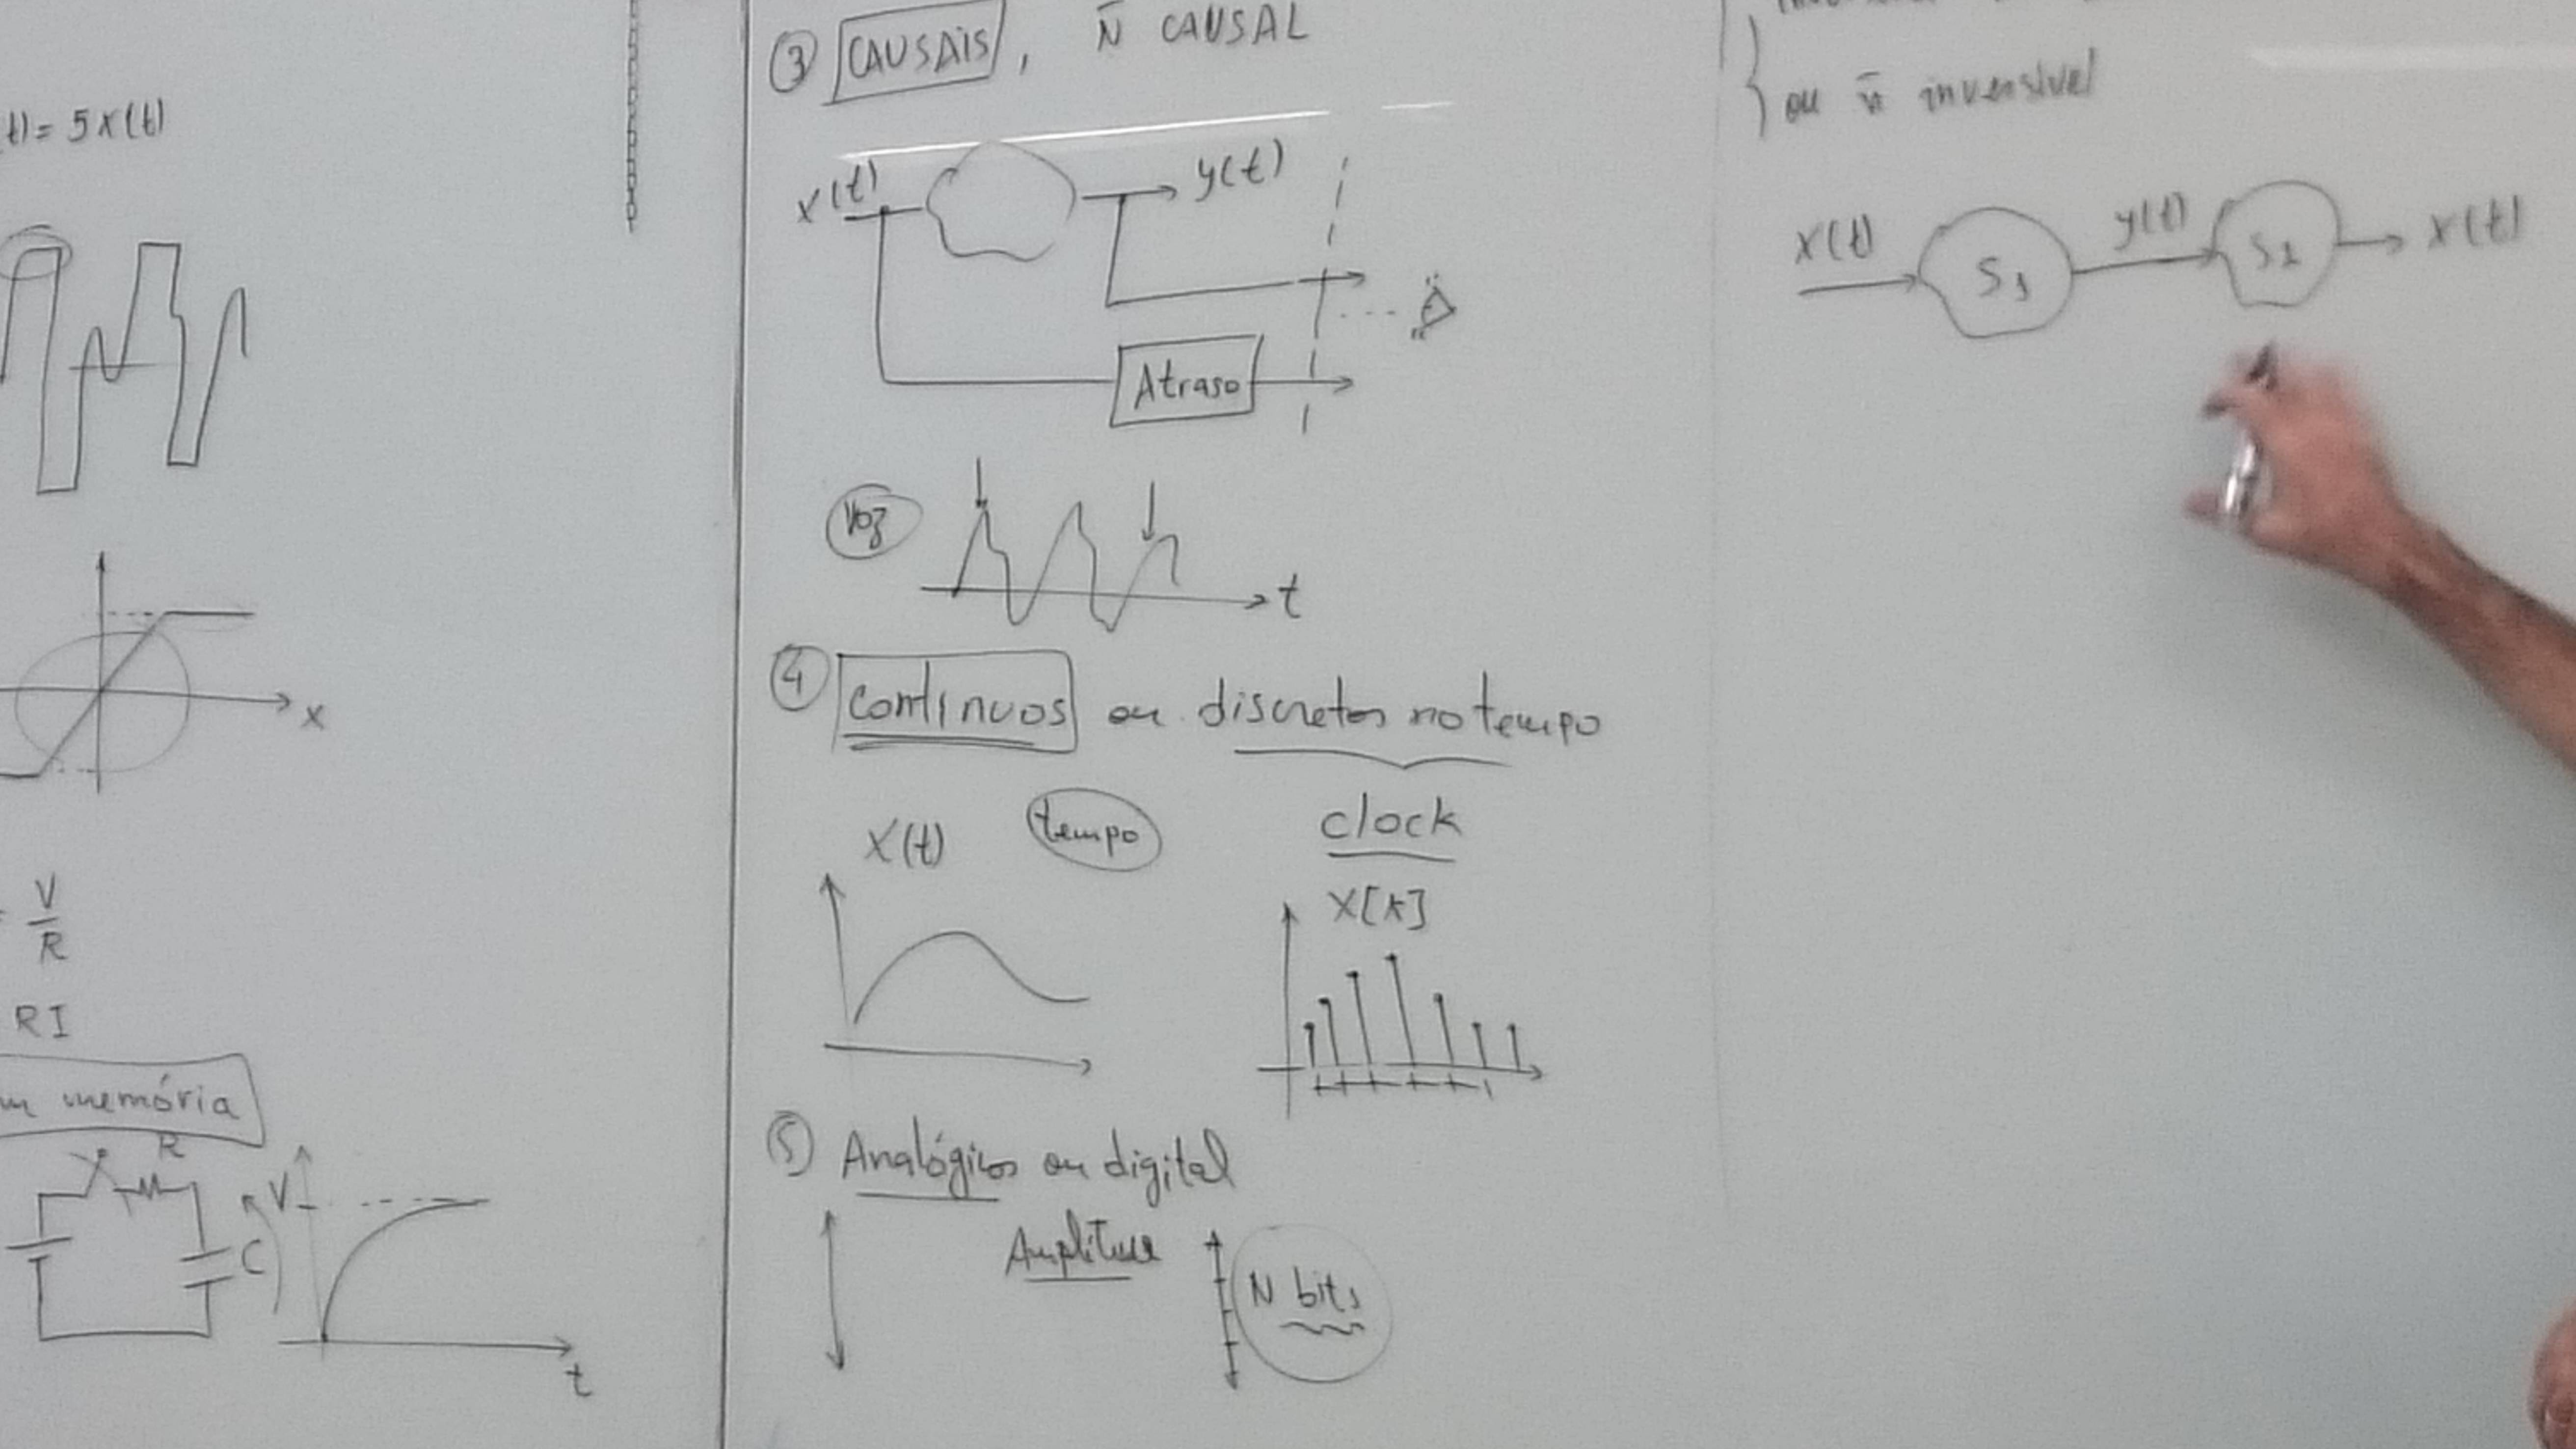 t) = 5x(t)
x
V
R
RI
memória
R
V
C
t
③ CAUSAIS, Ñ CAUSAL
x(t)
y(t)
Atraso
Voz
t
④ Contínuos ou discretos no tempo
X(t) tempo clock
X[k]
⑤ Analógicos ou digital
N bits
ou ñ inversível
X(t) S1 y(t) S2 X(t)